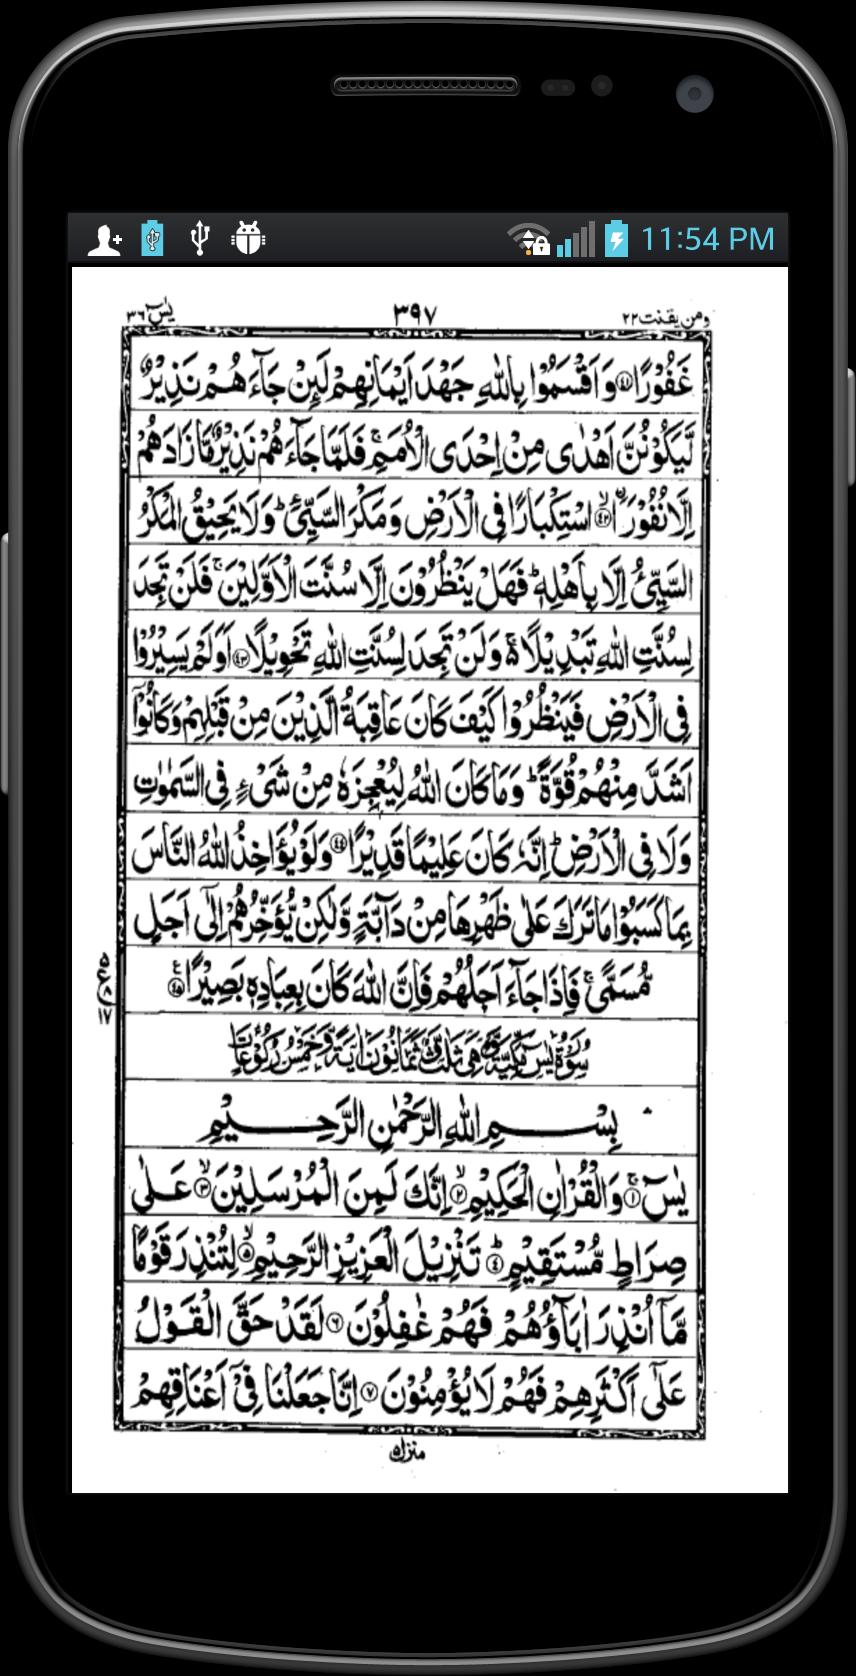 11:54 PM
ومن يقنت ٢٢
٣٩٧
يٰسٓ ٣٦
غَفُوْرًا ﴿٤١﴾ وَاَقْسَمُوْا بِاللّٰهِ جَهْدَ اَيْمَانِهِمْ لَئِنْ جَآءَهُمْ نَذِيْرٌ
لَّيَكُوْنُنَّ اَهْدٰى مِنْ اِحْدَى الْاُمَمِ ۚ فَلَمَّا جَآءَهُمْ نَذِيْرٌ مَّا زَادَهُمْ
اِلَّا نُفُوْرَا ۙ﴿٤٢﴾ اسْتِكْبَارًا فِى الْاَرْضِ وَمَكْرَ السَّيِّئِ ؕ وَلَا يَحِيْقُ الْمَكْرُ
السَّيِّئُ اِلَّا بِاَهْلِهٖ ؕ فَهَلْ يَنْظُرُوْنَ اِلَّا سُنَّتَ الْاَوَّلِيْنَ ۚ فَلَنْ تَجِدَ
لِسُنَّتِ اللّٰهِ تَبْدِيْلًا ۚ۬ وَلَنْ تَجِدَ لِسُنَّتِ اللّٰهِ تَحْوِيْلًا ﴿٤٣﴾ اَوَلَمْ يَسِيْرُوْا
فِى الْاَرْضِ فَيَنْظُرُوْا كَيْفَ كَانَ عَاقِبَةُ الَّذِيْنَ مِنْ قَبْلِهِمْ وَكَانُوْٓا
اَشَدَّ مِنْهُمْ قُوَّةً ؕ وَمَا كَانَ اللّٰهُ لِيُعْجِزَهٗ مِنْ شَىْءٍ فِى السَّمٰوٰتِ
وَلَا فِى الْاَرْضِ ؕ اِنَّهٗ كَانَ عَلِيْمًا قَدِيْرًا ﴿٤٤﴾ وَلَوْ يُؤَاخِذُ اللّٰهُ النَّاسَ
بِمَا كَسَبُوْا مَا تَرَكَ عَلٰى ظَهْرِهَا مِنْ دَآبَّةٍ وَّلٰكِنْ يُّؤَخِّرُهُمْ اِلٰٓى اَجَلٍ
مُّسَمًّى ۚ فَاِذَا جَآءَ اَجَلُهُمْ فَاِنَّ اللّٰهَ كَانَ بِعِبَادِهٖ بَصِيْرًا ﴿٤٥﴾
٥
ع
٨
١٧
سُوْرَةُ يٰسٓ مَكِّيَّةٌ وَّهِىَ ثَلٰثٌ وَّثَمَانُوْنَ اٰيَةً وَّخَمْسُ رُكُوْعَاتٍ
بِسْمِ اللّٰهِ الرَّحْمٰنِ الرَّحِيْمِ
يٰسٓ ۚ﴿١﴾ وَالْقُرْاٰنِ الْحَكِيْمِ ۙ﴿٢﴾ اِنَّكَ لَمِنَ الْمُرْسَلِيْنَ ۙ﴿٣﴾ عَلٰى
صِرَاطٍ مُّسْتَقِيْمٍ ؕ﴿٤﴾ تَنْزِيْلَ الْعَزِيْزِ الرَّحِيْمِ ۙ﴿٥﴾ لِتُنْذِرَ قَوْمًا
مَّآ اُنْذِرَ اٰبَآؤُهُمْ فَهُمْ غٰفِلُوْنَ ﴿٦﴾ لَقَدْ حَقَّ الْقَوْلُ
عَلٰٓى اَكْثَرِهِمْ فَهُمْ لَا يُؤْمِنُوْنَ ﴿٧﴾ اِنَّا جَعَلْنَا فِىْٓ اَعْنَاقِهِمْ
منزل ٥